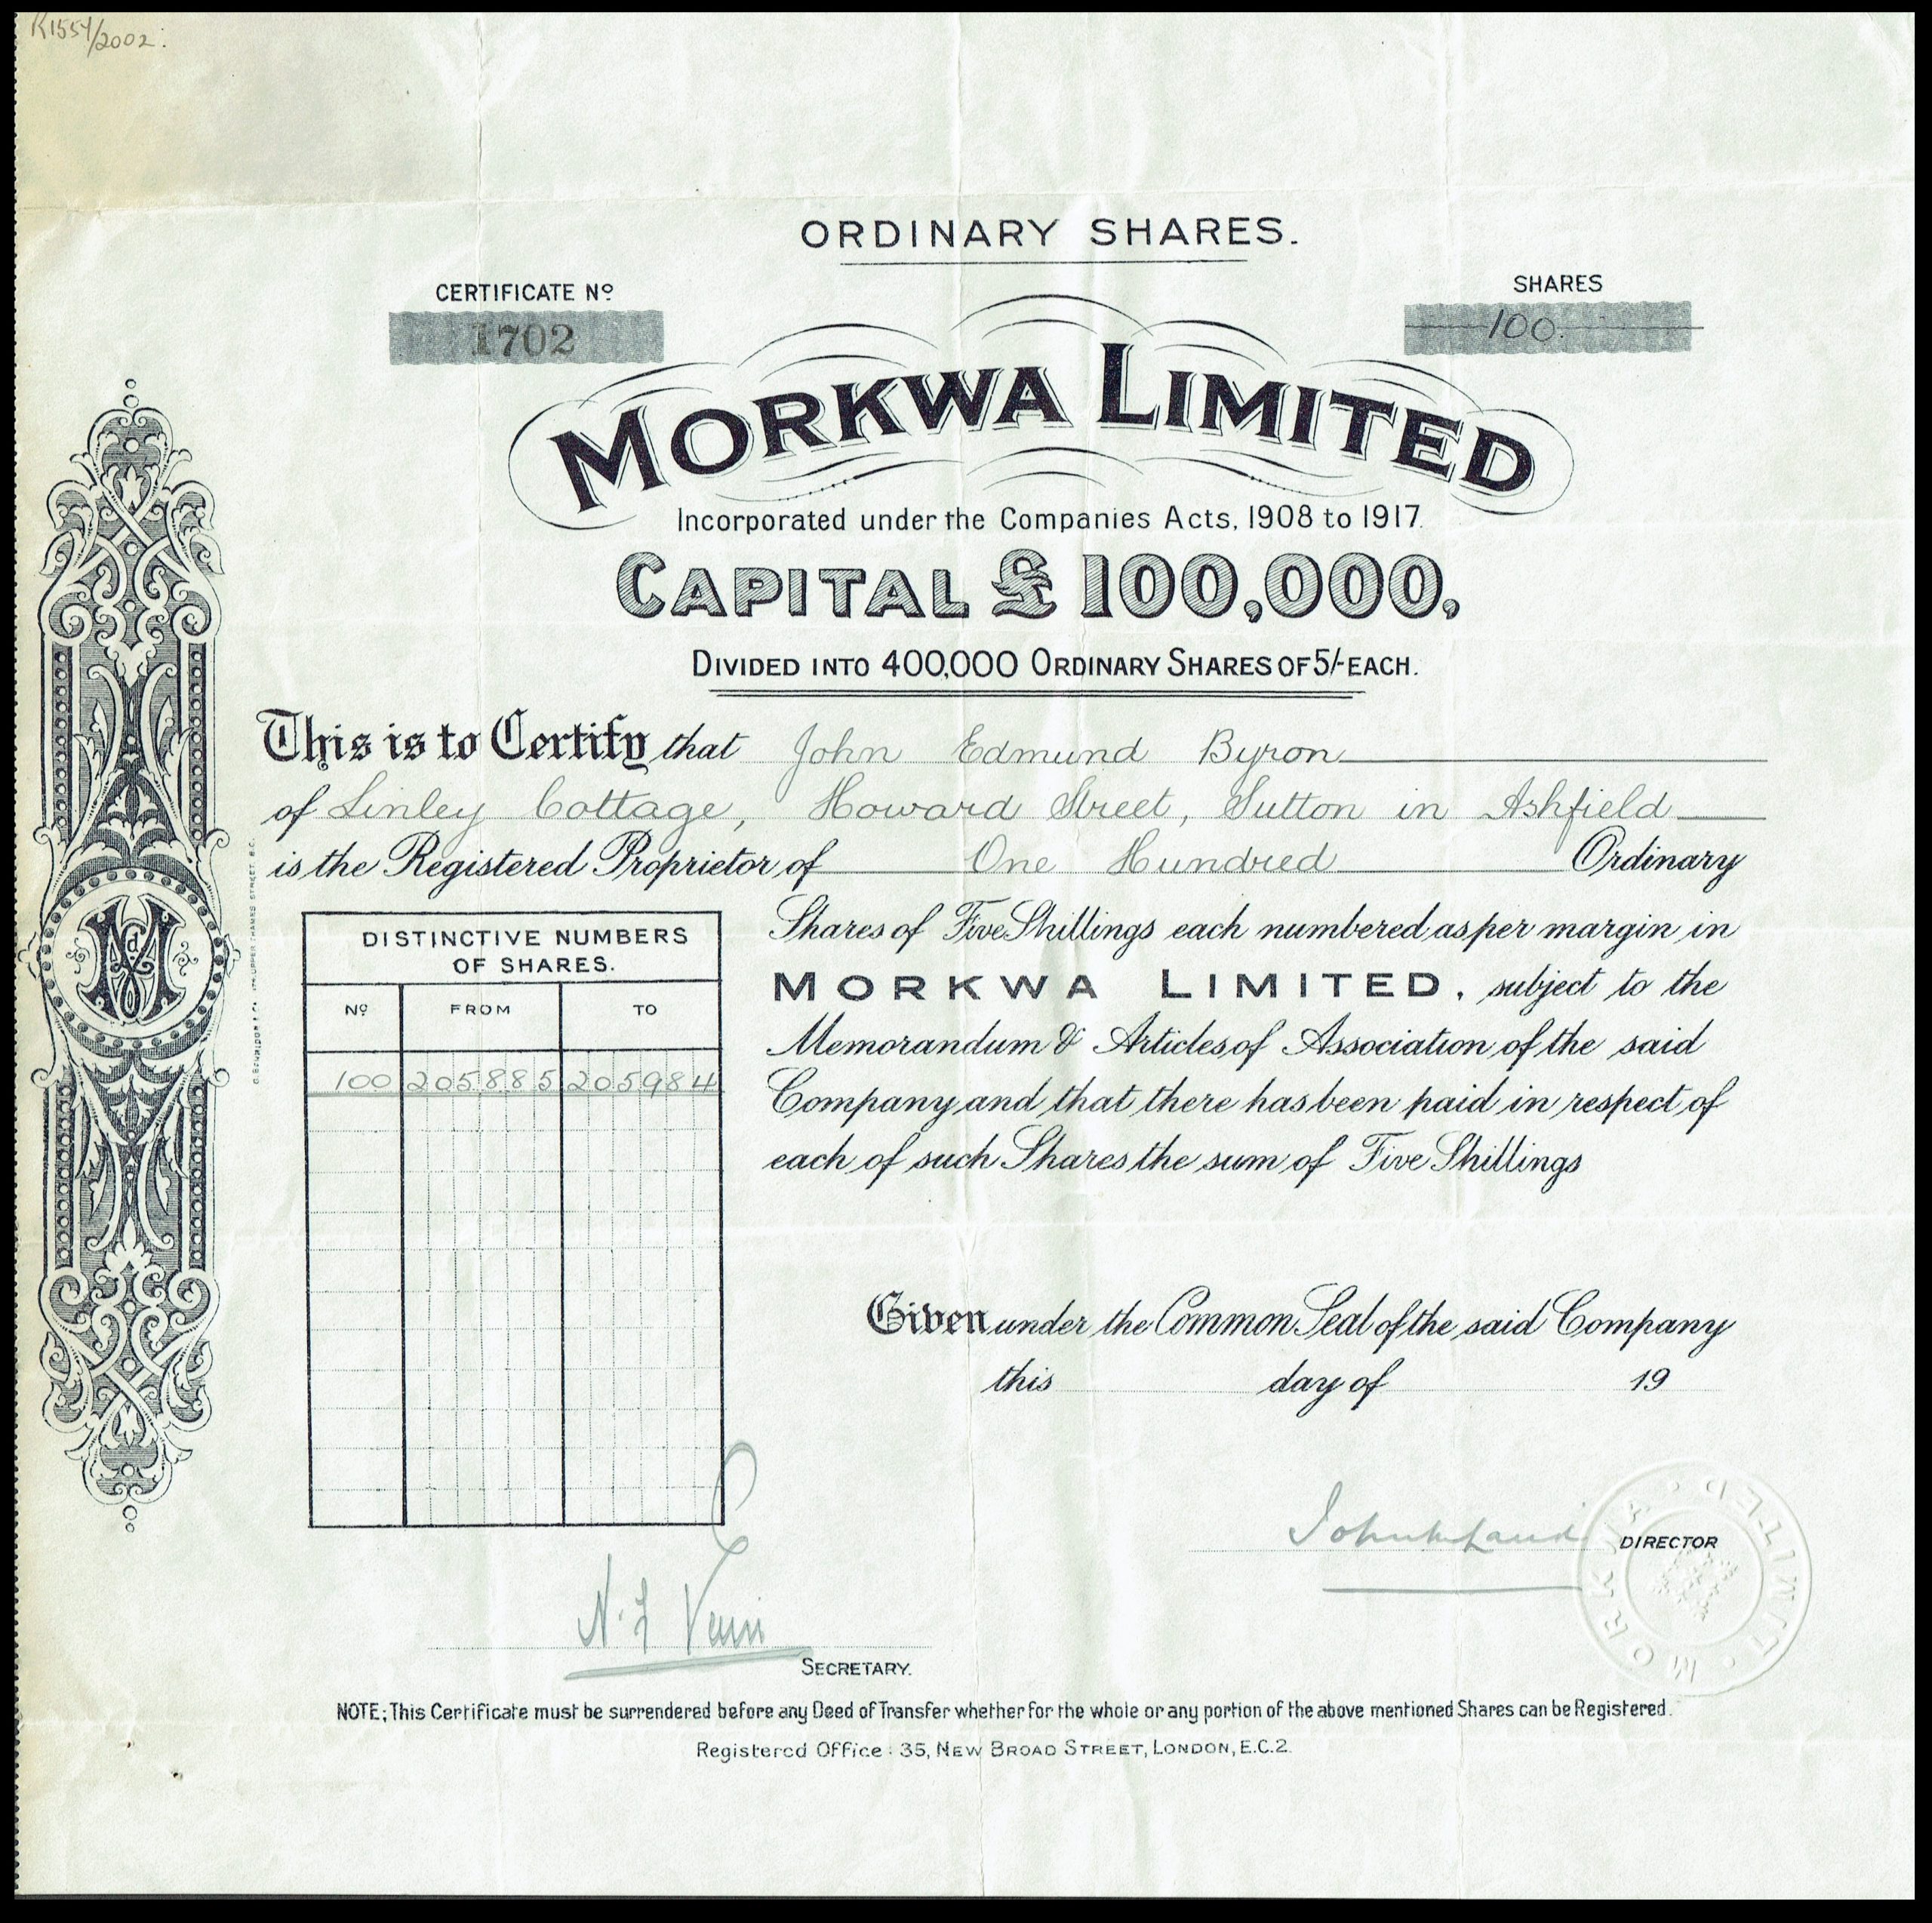 K1554/2002.
ORDINARY SHARES.
CERTIFICATE Nº
1702
SHARES
100.
MORKWA LIMITED
Incorporated under the Companies Acts, 1908 to 1917.
CAPITAL £100,000,
DIVIDED INTO 400,000 ORDINARY SHARES OF 5/- EACH.
This is to Certify that John Edmund Byron
of Linley Cottage, Howard Street, Sutton in Ashfield
is the Registered Proprietor of One Hundred Ordinary
Shares of Five Shillings each numbered as per margin in
MORKWA LIMITED, subject to the
Memorandum & Articles of Association of the said
Company and that there has been paid in respect of
each of such Shares the sum of Five Shillings
DISTINCTIVE NUMBERS
OF SHARES.
Nº FROM TO
100 205885 205984
Given under the Common Seal of the said Company
this day of 19
DIRECTOR
MORKWA LIMITED
SECRETARY.
NOTE; This Certificate must be surrendered before any Deed of Transfer whether for the whole or any portion of the above mentioned Shares can be Registered.
Registered Office: 35, NEW BROAD STREET, LONDON, E.C.2.